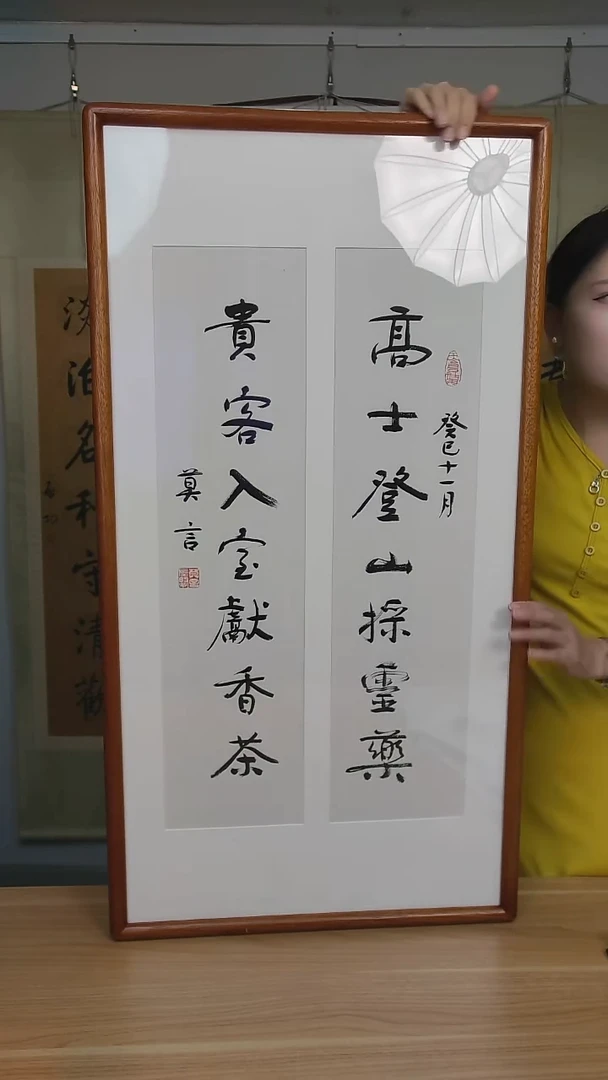 高士登山採靈藥
癸巳十一月
貴客入室獻香茶
莫言
淡泊名利守清